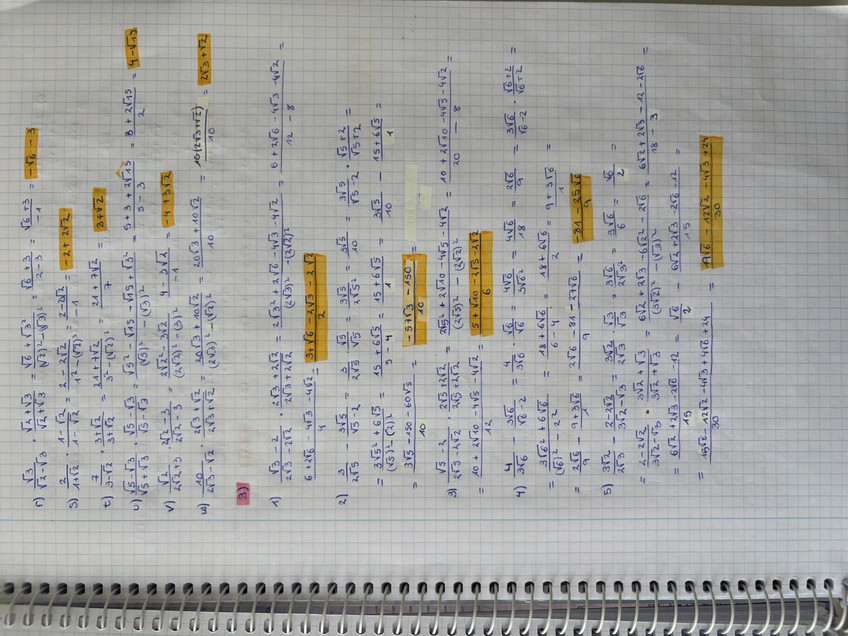 r) √3/(√2-√3) · (√2+√3)/(√2+√3) = (√6+√3²)/((√2)²-(√3)²) = (√6+3)/(2-3) = (√6+3)/(-1) = -√6-3
s) 2/(1+√2) · (1-√2)/(1-√2) = (2-2√2)/(1²-(√2)²) = (2-2√2)/(-1) = -2+2√2
t) 7/(3-√2) · (3+√2)/(3+√2) = (21+7√2)/(3²-(√2)²) = (21+7√2)/7 = 3+√2
u) (√5-√3)/(√5+√3) · (√5-√3)/(√5-√3) = (√5²-√15-√15+√3²)/((√5)²-(√3)²) = (5+3+2√15)/(5-3) = (8+2√15)/2 = 4-√15
v) √2/(2√2+3) · (2√2-3)/(2√2-3) = (2√2²-3√2)/((2√2)²-(3)²) = (4-3√2)/(-1) = -4+3√2
w) 10/(2√3-√2) · (2√3+√2)/(2√3+√2) = (20√3+10√2)/((2√3)²-(√2)²) = (20√3+10√2)/10 = 10(2√3+√2)/10 = 2√3+√2
3)
1) (√3-2)/(2√3-2√2) · (2√3+2√2)/(2√3+2√2) = (2√3²+2√6-4√3-4√2)/((2√3)²-(2√2)²) = (6+2√6-4√3-4√2)/(12-8) =
(6+2√6-4√3-4√2)/4 = (3+√6-2√3-2√2)/2
2) 3/(2√5) - 3√5/(√5-2) = 3/(2√5) · √5/√5 = 3√5/(2√5²) = 3√5/10 = 3√5/(√5-2) · (√5+2)/(√5+2) =
= (3√5²+6√5)/((√5)²-(2)²) = (15+6√5)/(5-4) = (15+6√5)/1 = 3√5/10 - (15+6√5)/1 =
= (3√5-150-60√5)/10 = (-57√3-150)/10
3) (√5-2)/(2√5-2√2) · (2√5+2√2)/(2√5+2√2) = (2√5²+2√10-4√5-4√2)/((2√5)²-(2√2)²) = (10+2√10-4√5-4√2)/(20-8) =
= (10+2√10-4√5-4√2)/12 = (5+√10-2√5-2√2)/6
4) 4/(3√6) - 3√6/(√6-2) = 4/(3√6) · √6/√6 = 4√6/(3√6²) = 4√6/18 = 2√6/9 = 3√6/(√6-2) · (√6+2)/(√6+2) =
= (3√6²+6√6)/((√6)²-2²) = (18+6√6)/(6-4) = (18+6√6)/2 = (9+3√6)/1 =
= 2√6/9 - (9+3√6)/1 = (2√6-81-27√6)/9 = (-81-25√6)/9
5) 3√2/(2√3) - (2-2√2)/(3√2-√3) = 3√2/(2√3) · √3/√3 = 3√6/(2√3²) = 3√6/6 = √6/2 =
= (2-2√2)/(3√2-√3) · (3√2+√3)/(3√2+√3) = (6√2+2√3-6√2²-2√6)/((3√2)²-(√3)²) = (6√2+2√3-12-2√6)/(18-3) =
= (6√2+2√3-2√6-12)/15 = √6/2 - (6√2+2√3-2√6-12)/15 =
= (15√6-12√2-4√3+4√6+24)/30 = (19√6-12√2-4√3+24)/30